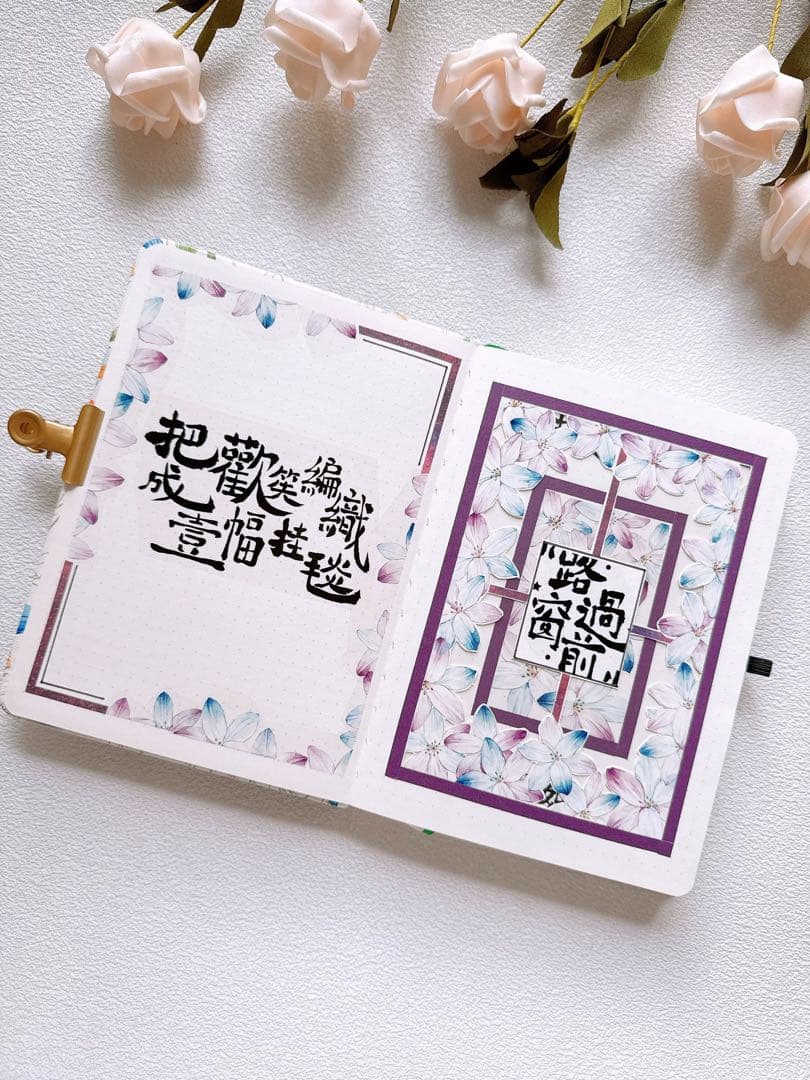 把歡笑編織
成壹幅挂毯
"路過
窗前"